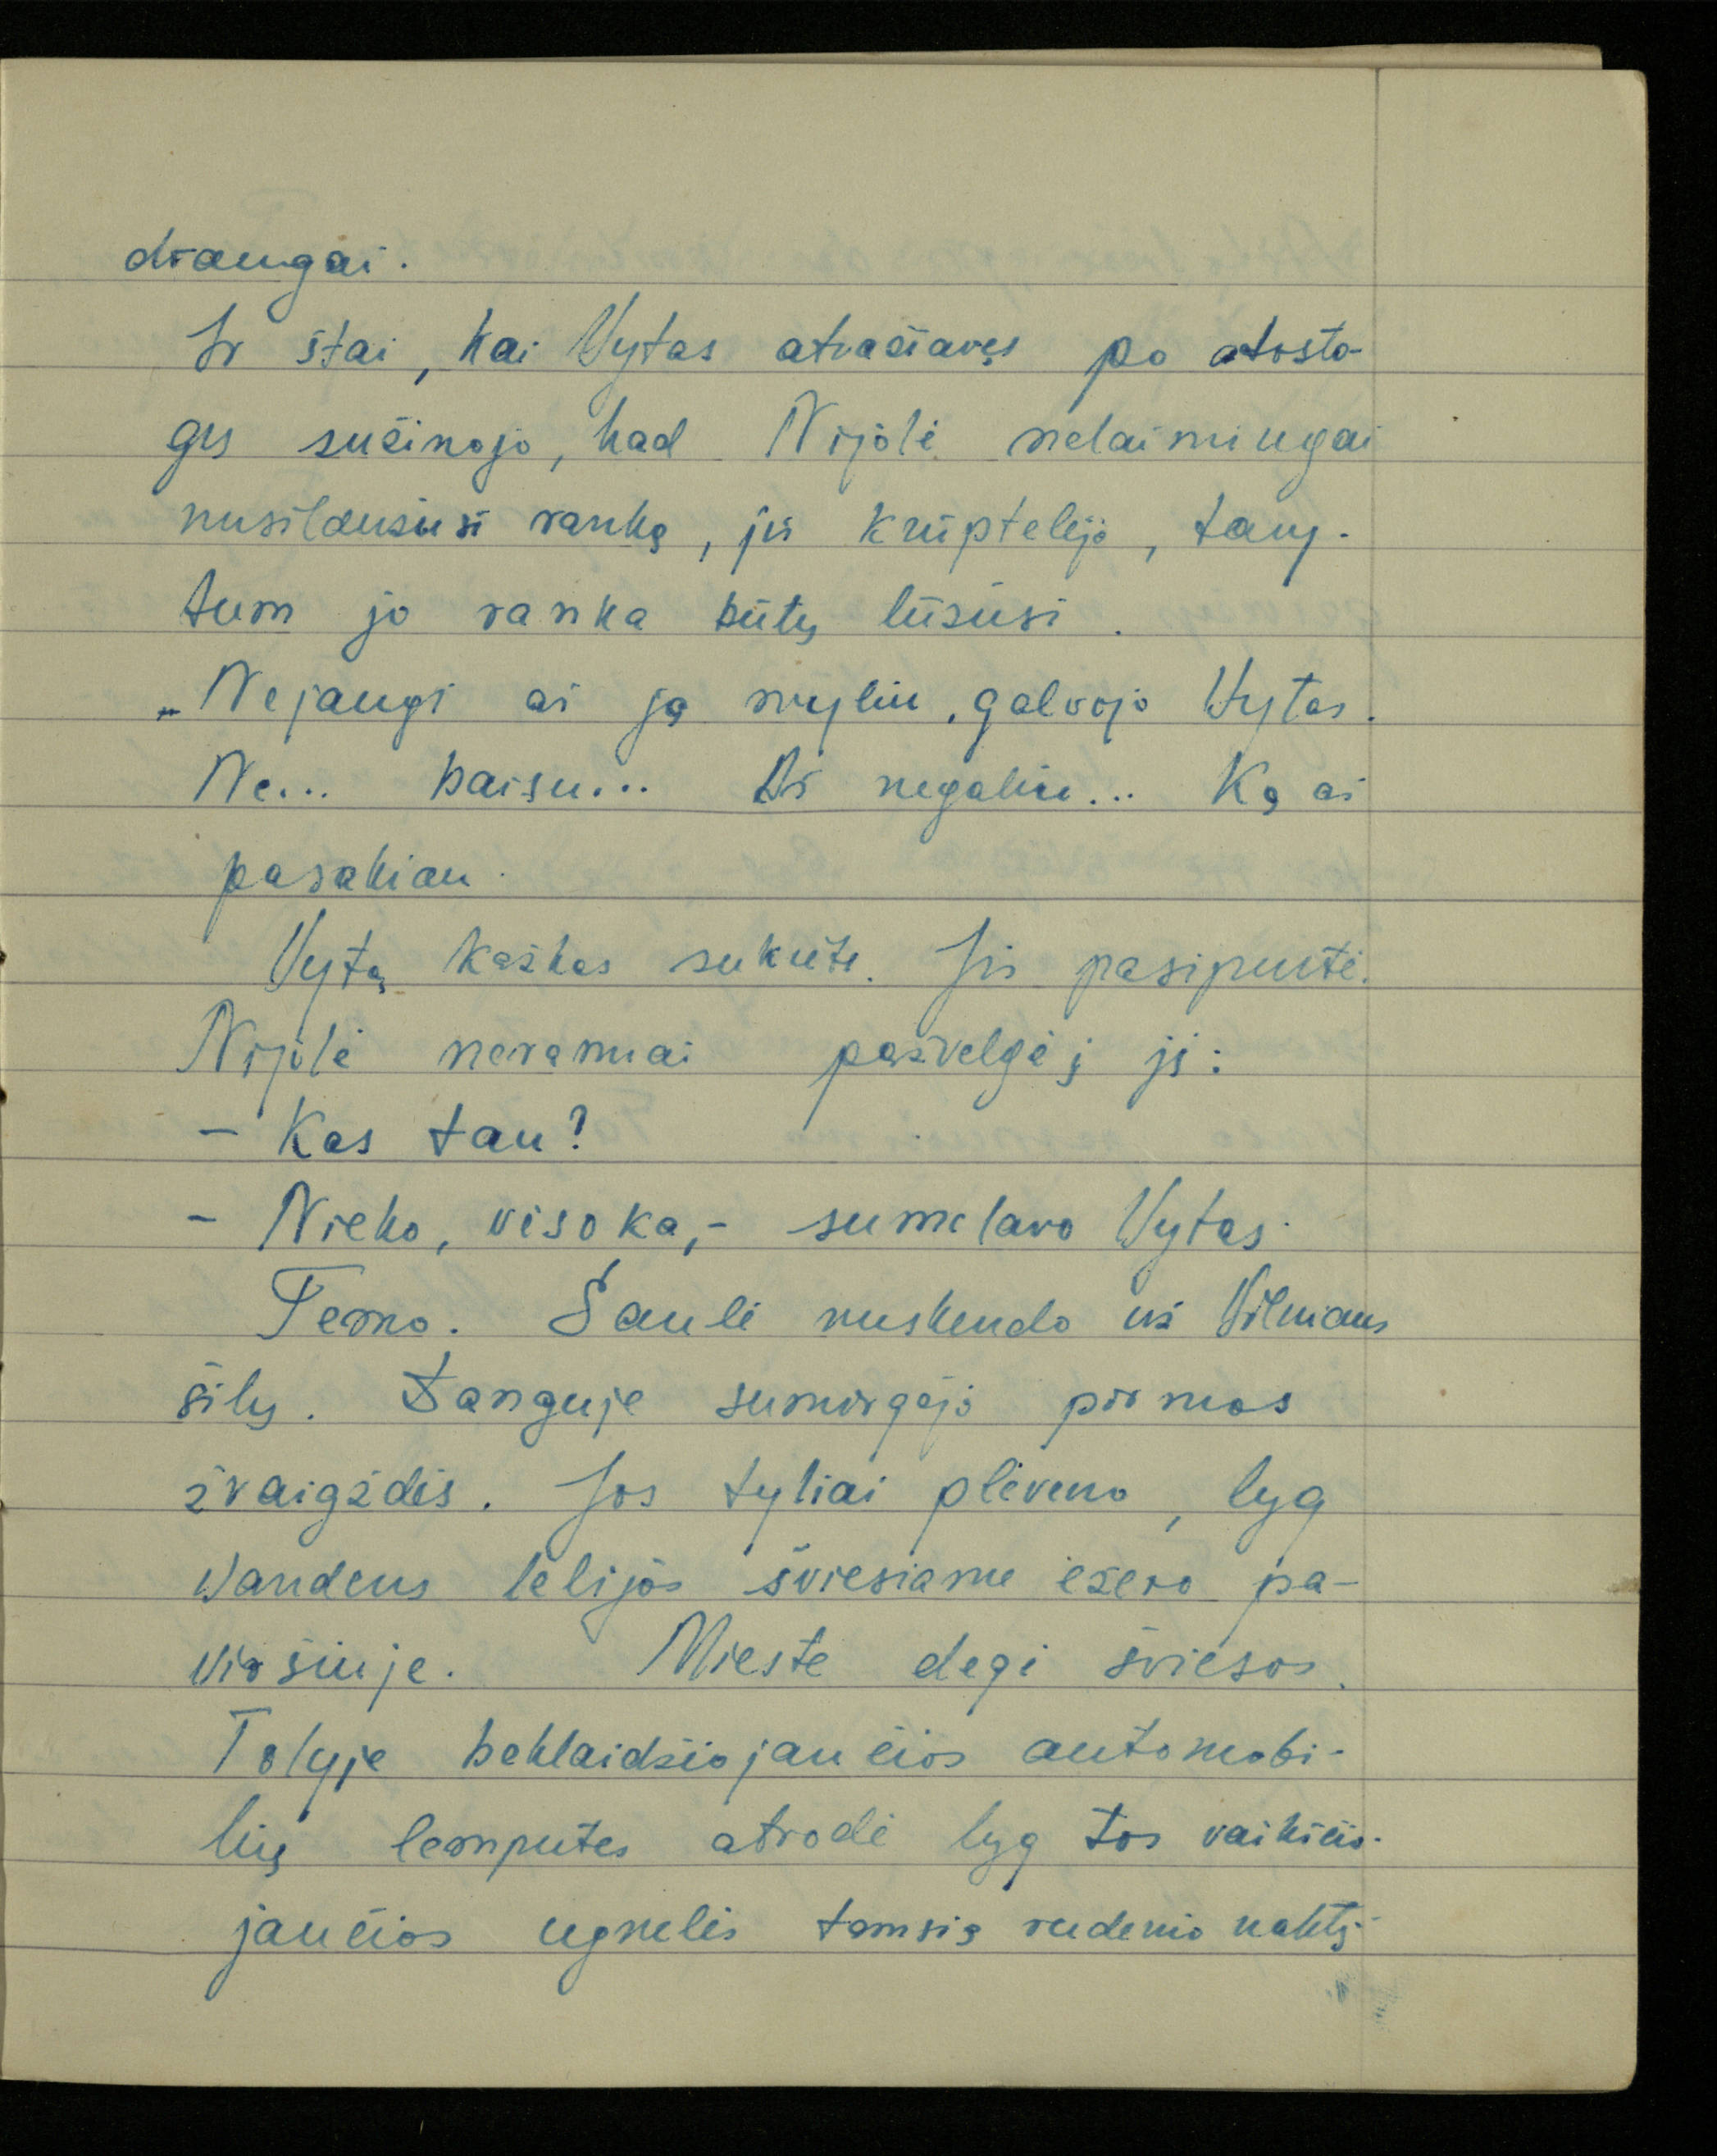 draugai.
Ir štai, kai Vytas atvažiavęs po atosto-
gų sužinojo, kad Nijolė nelaimingai
nusilaužusi ranką, jis krūptelėjo, tary-
tum jo ranka būtų lūžusi.
„Nejaugi aš ją myliu, galvojo Vytas.
Ne... baisu... Aš negaliu... Ką aš
pasakiau.
Vytą kažkas sukrėtė. Jis pasipurtė.
Nijolė neramiai pažvelgė į jį:
– Kas tau?
– Nieko, visoka,- sumelavo Vytas.
Temo. Saulė nuskendo už Vilniaus
šilų. Danguje sumirgėjo pirmos
žvaigždės. Jos tyliai plėveno, lyg
vandens lelijos šviesiame ežero pa-
viršiuje. Mieste degė šviesos.
Tolyje beklaidžiojančios automobi-
lių lemputės atrodė lyg tos vaikščio-
jančios ugnelės tamsią rudenio naktį.